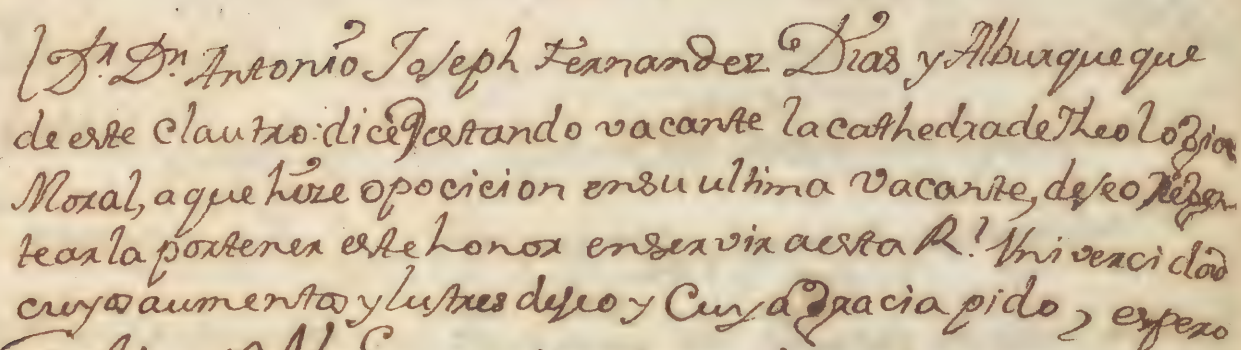 Dr. Dn. Antonio Joseph Fernandez Dias y Alburqueque
de este claustro: dice q estando vacante la cathedra de Theologia
Moral, a que hize opocicion en su ultima vacante, deseo Regen-
tearla por tener este honor en servir a esta Rl. Univercidad
cuyos aumentos y lustres deseo y Cuya gracia pido, espero